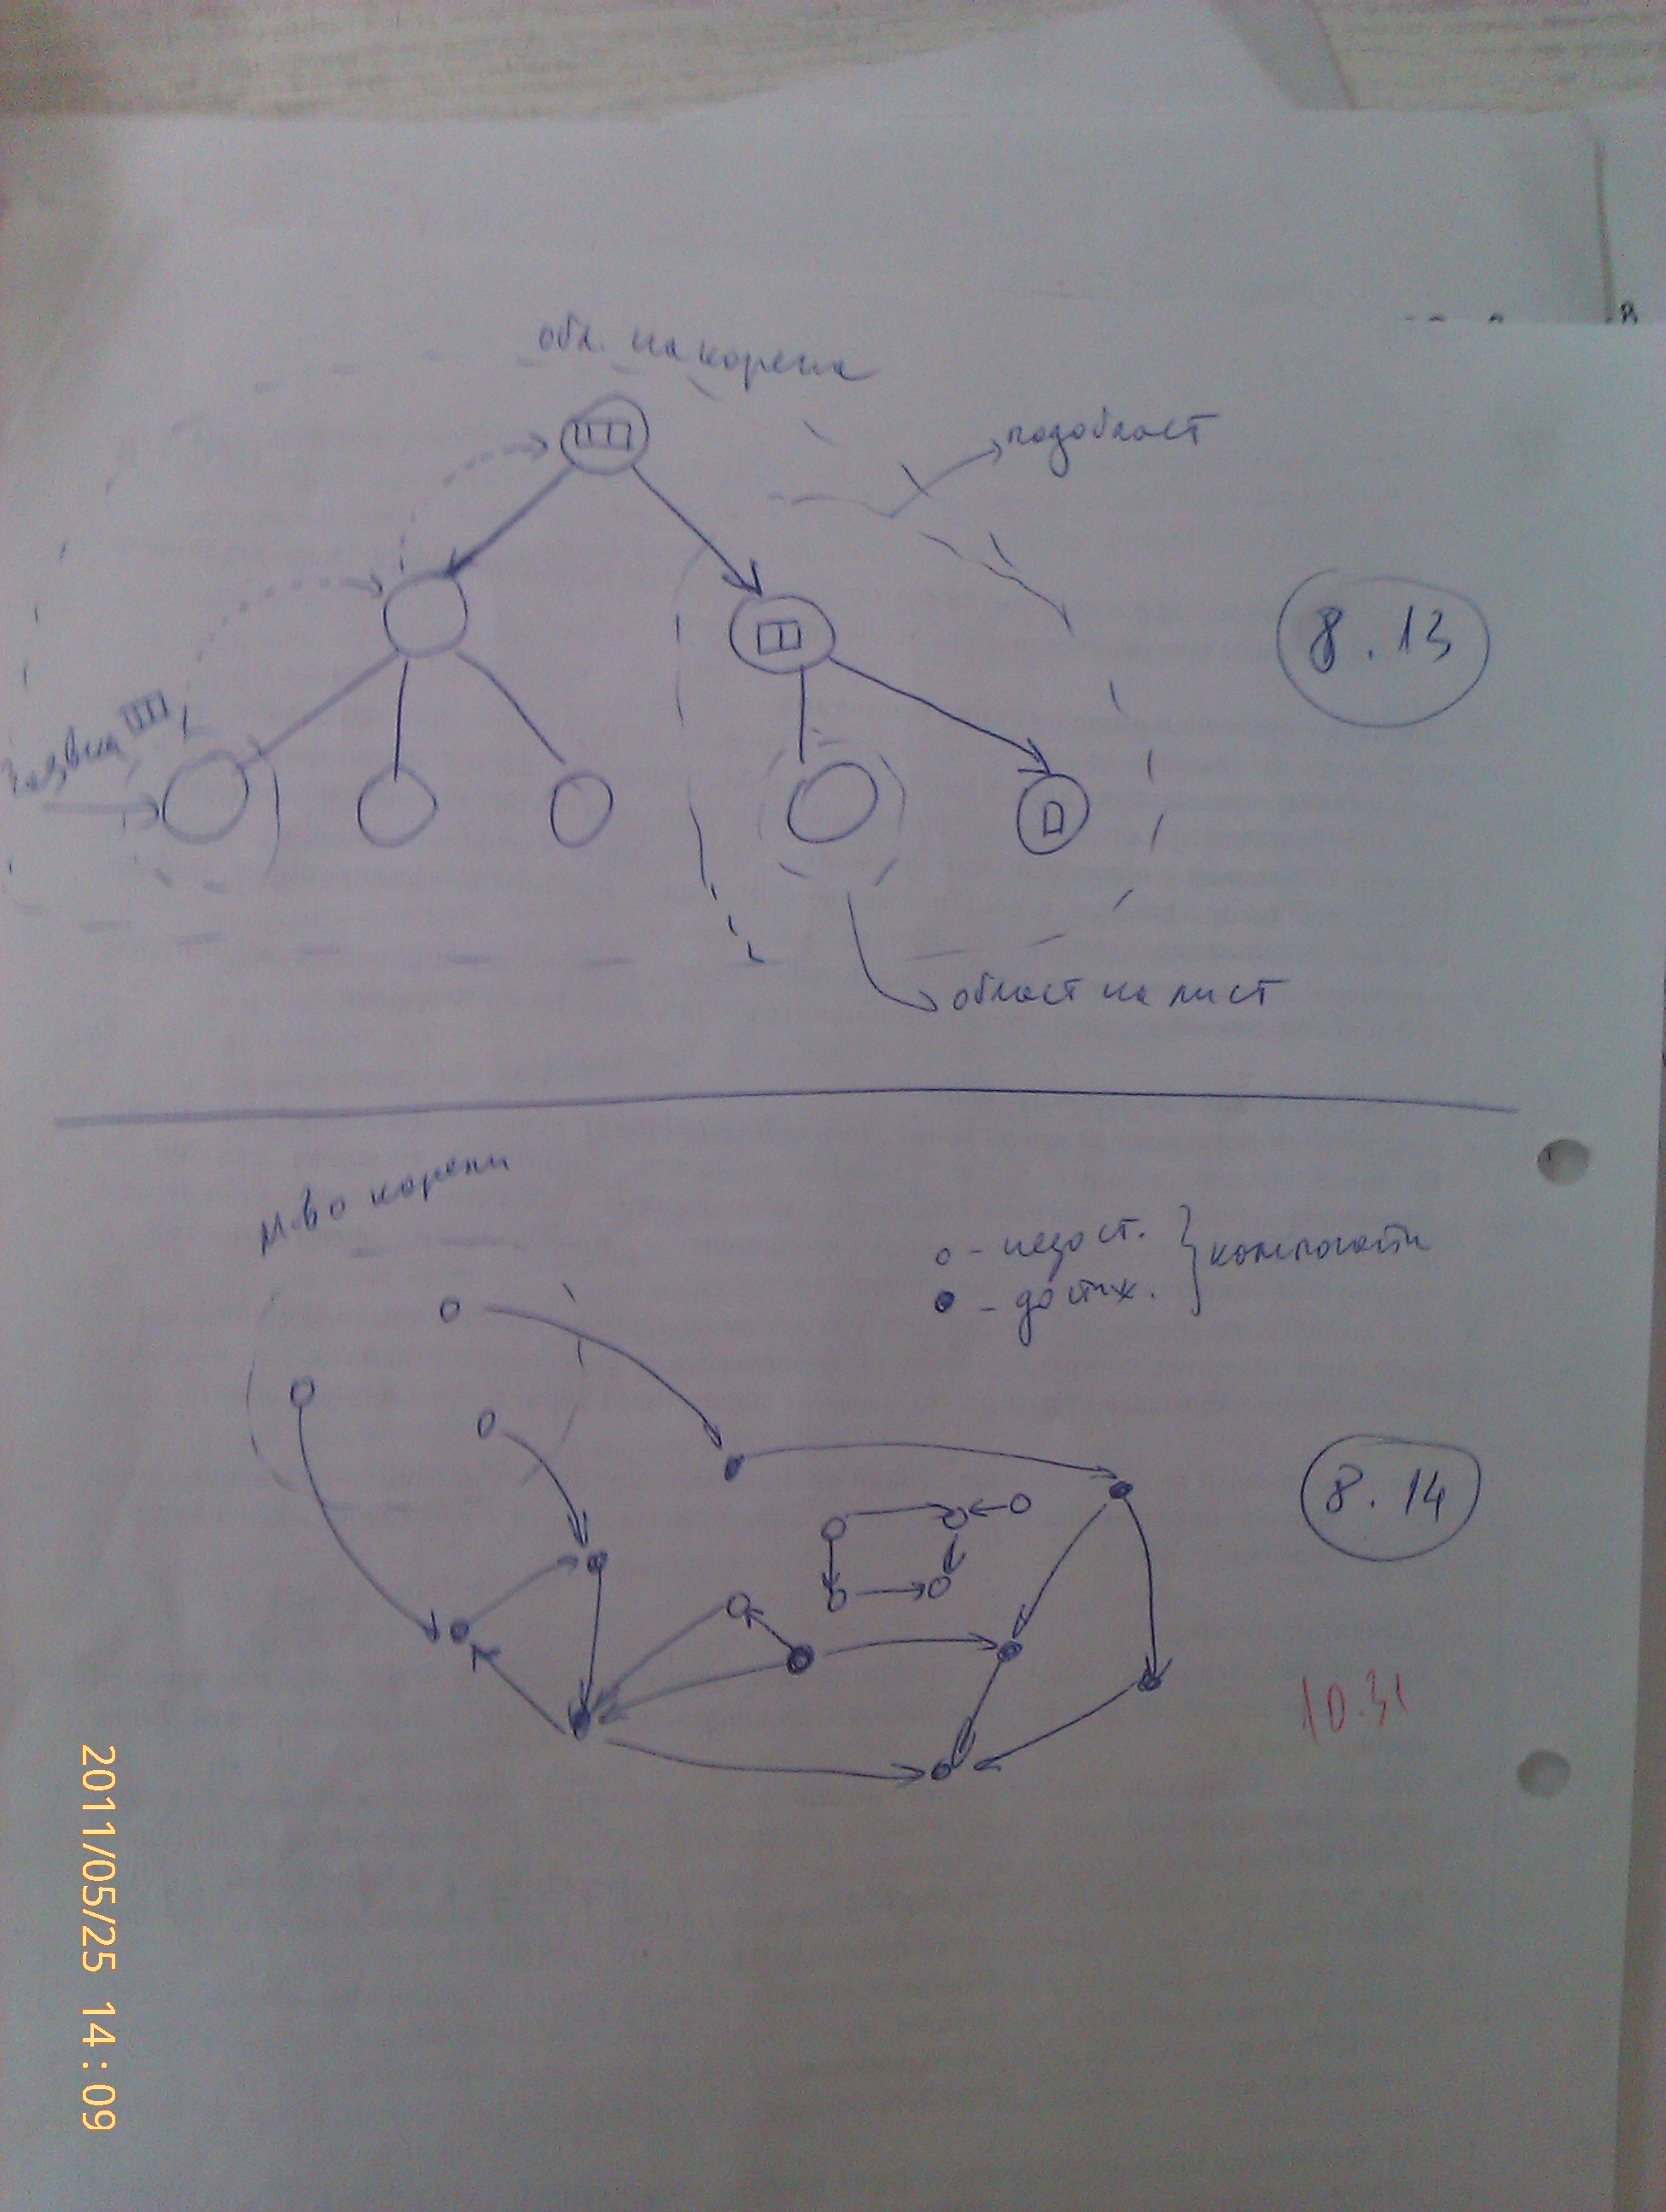 обл. на корена
подобласт
8.13
Заявка
област на лист
М-во корени
о - недост.
● - достиж.
} компоненти
8.14
10.31
2011/05/25 14:09